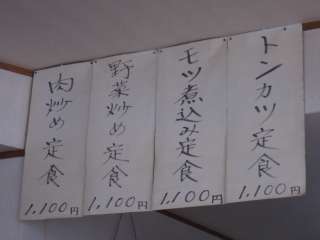 トンカツ定食
1.100円
モツ煮込み定食
1.100円
野菜炒め定食
1.100円
肉炒め定食
1.100円